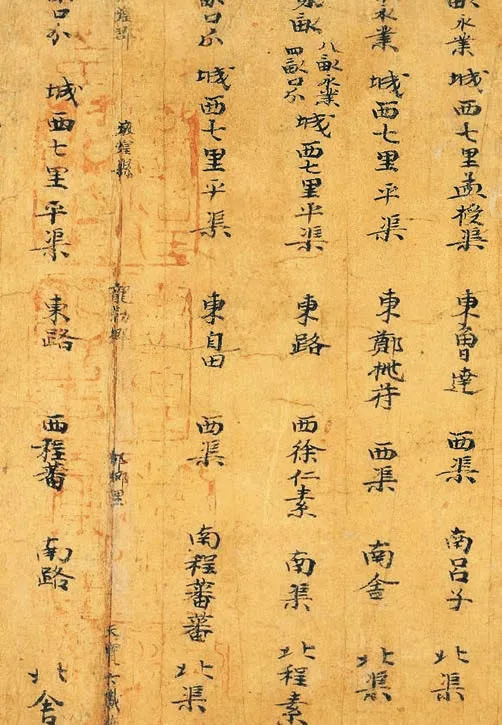 畝永業 城西七里孟授渠 東魯達 西渠 南呂子 北渠
永業 城西七里平渠 東鄭桃苻 西渠 南舍 北渠
畝 八畝永業
四畝口分 城西七里平渠 東路 西徐仁素 南渠 北程素
畝口分 城西七里平渠 東自田 西渠 南程蕃蕃 北渠
燉煌郡 燉煌縣 龍勒鄉 都鄉里 天寶六載
畝口分 城西七里平渠 東路 西程蕃 南路 北舍